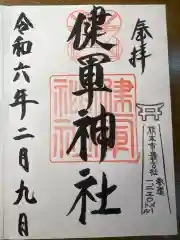 奉拝
健軍神社
令和六年二月九日
熊本市
健軍
神社